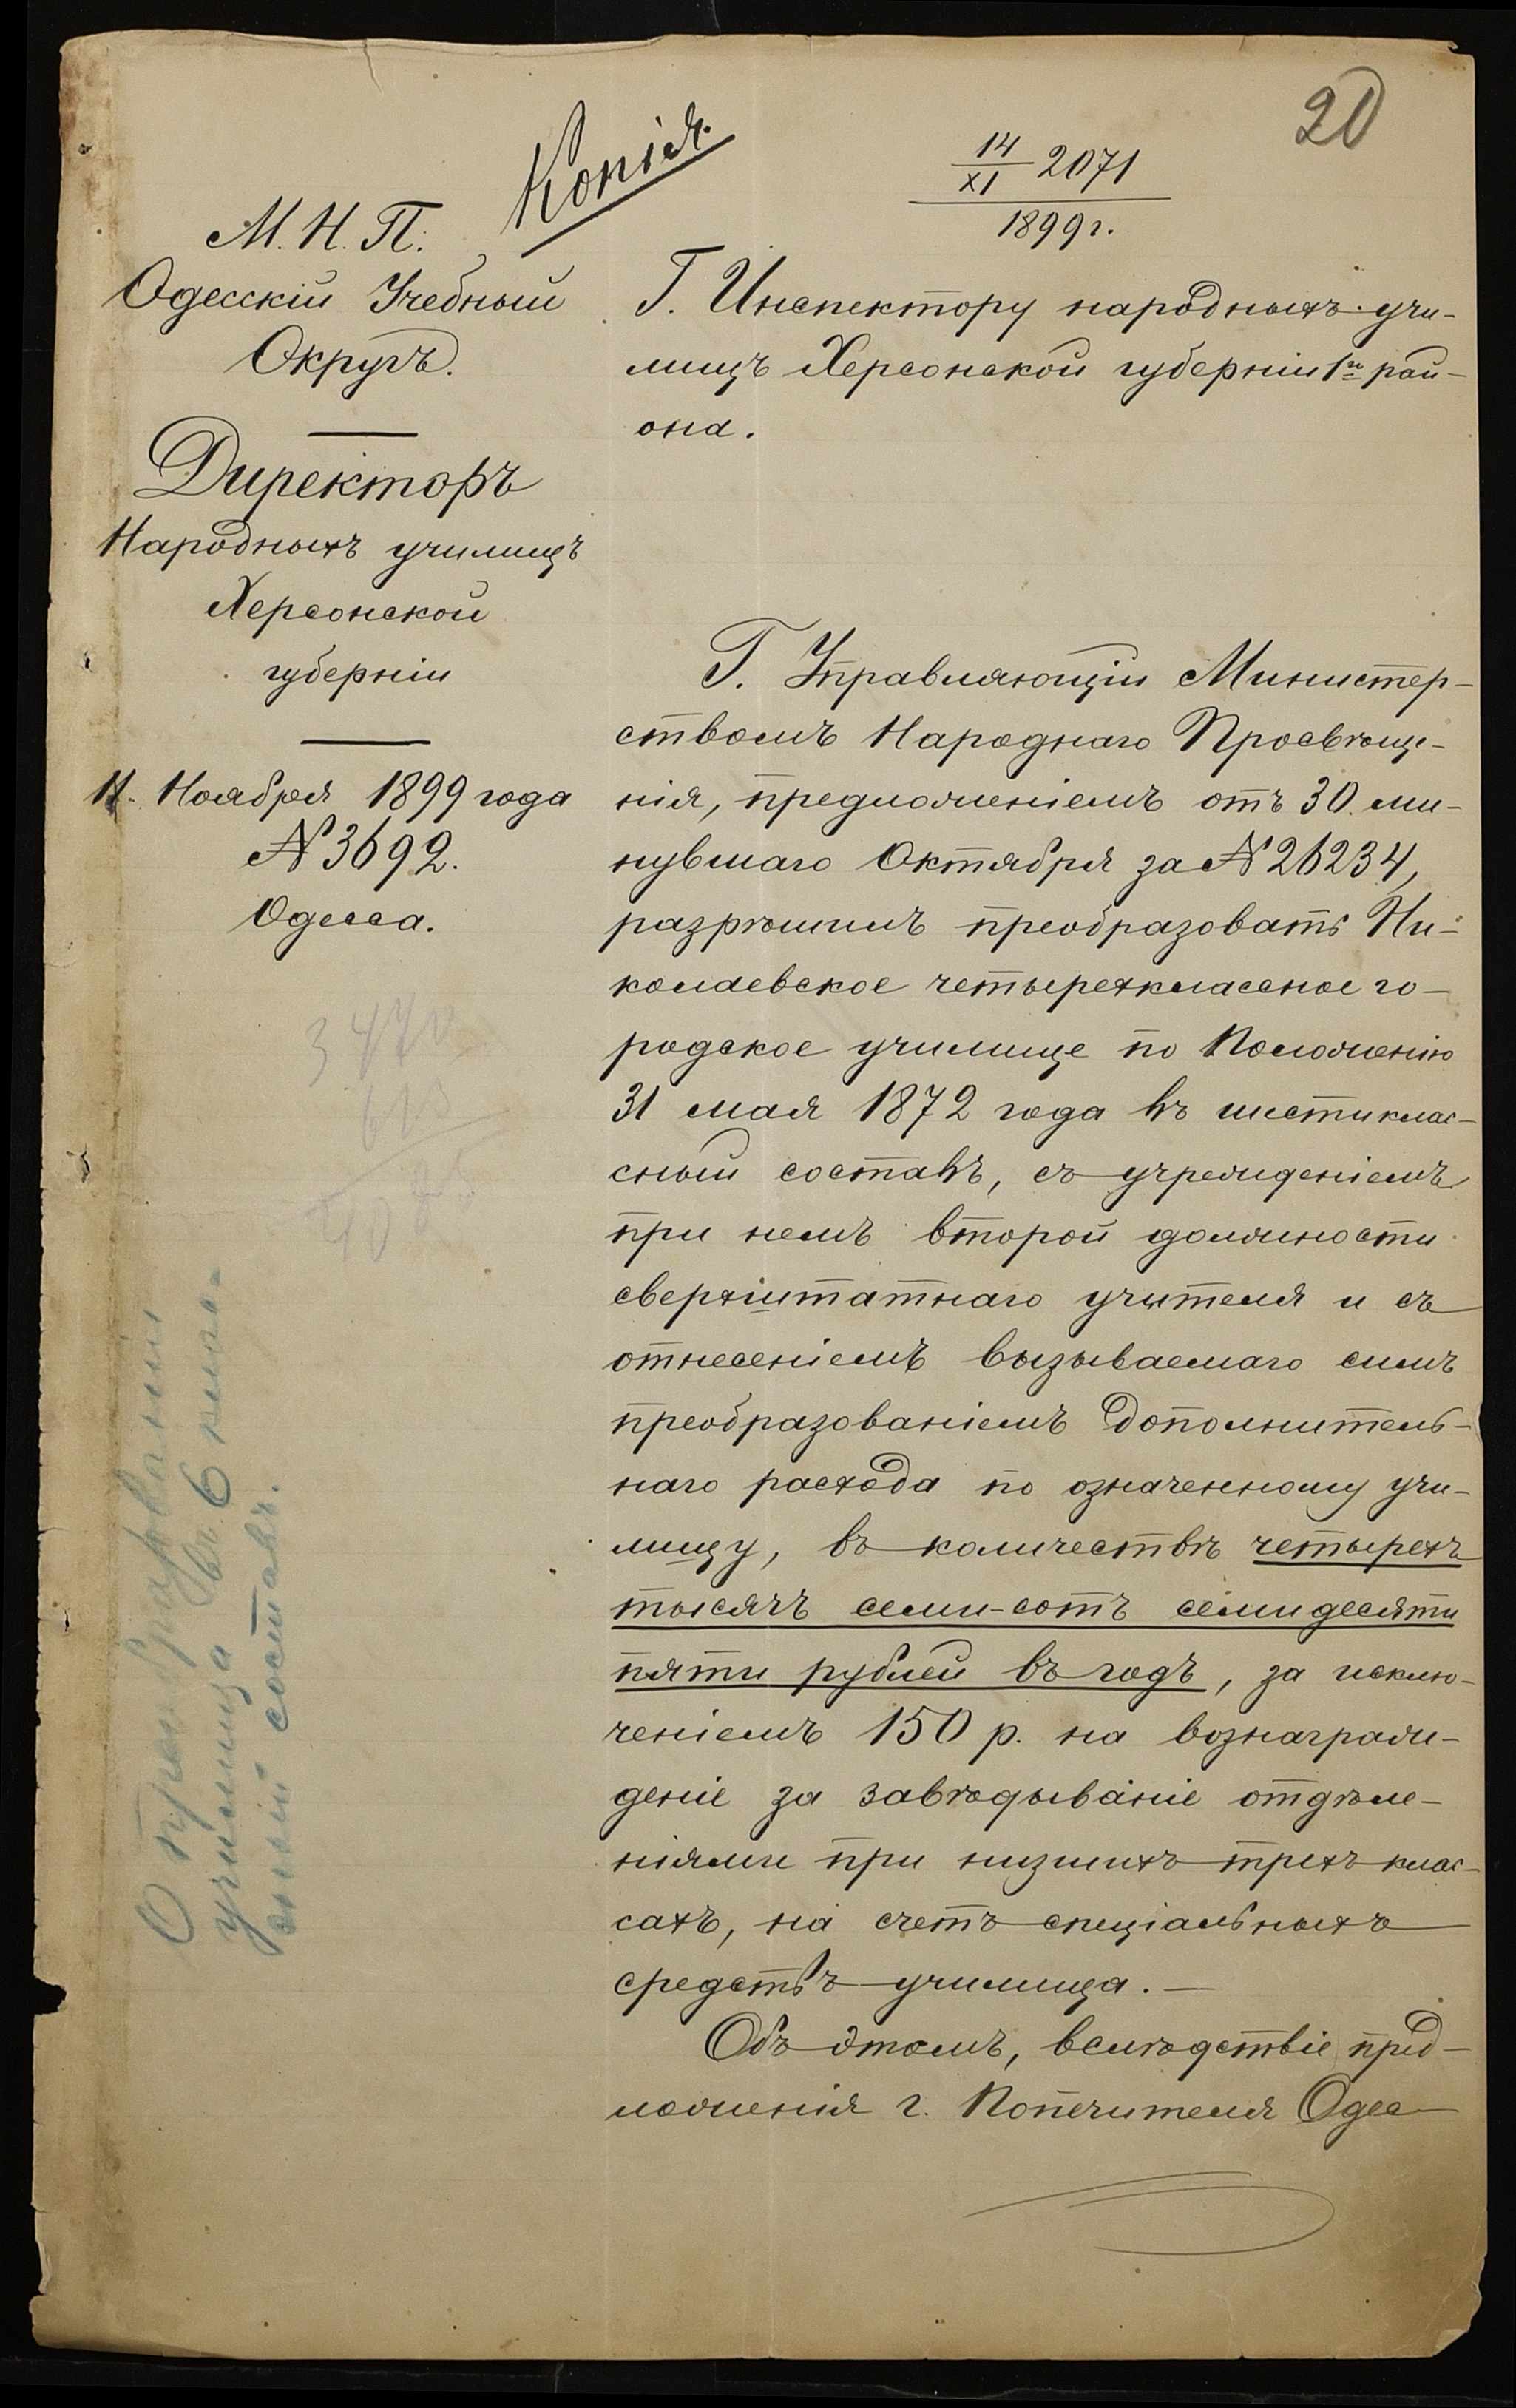 20
Копія.
14/XI 2071
1899 г.
М. Н. П.
Одесскій Учебный
Округъ.
Директоръ
Народныхъ училищъ
Херсонской
губерніи
11 Ноября 1899 года
№ 3692.
Одесса.
Г. Инспектору народныхъ учи-
лищъ Херсонской губерніи 1го рай-
она.
Г. Управляющій Министер-
ствомъ Народнаго Просвѣще-
нія, предложеніемъ отъ 30 ми-
нувшаго Октября за № 26234,
разрѣшилъ преобразовать Ни-
колаевское четырехклассное го-
родское училище по Положенію
31 мая 1872 года въ шестиклас-
сный составъ, съ учрежденіемъ
при немъ второй должности
сверхштатнаго учителя и съ
отнесеніемъ вызываемаго симъ
преобразованіемъ дополнитель-
наго расхода по означенному учи-
лищу, въ количествѣ четырехъ
тысячъ семи-сотъ семидесяти
пяти рублей въ годъ, за исклю-
ченіемъ 150 р. на вознаграж-
деніе за завѣдываніе отдѣле-
ніями при низшихъ трехъ клас-
сахъ, на счетъ спеціальныхъ
средствъ училища.—
Объ этомъ, вслѣдствіе пред-
ложенія г. Попечителя Одес-
О преобразованіи
училища въ 6 клас-
сный составъ.